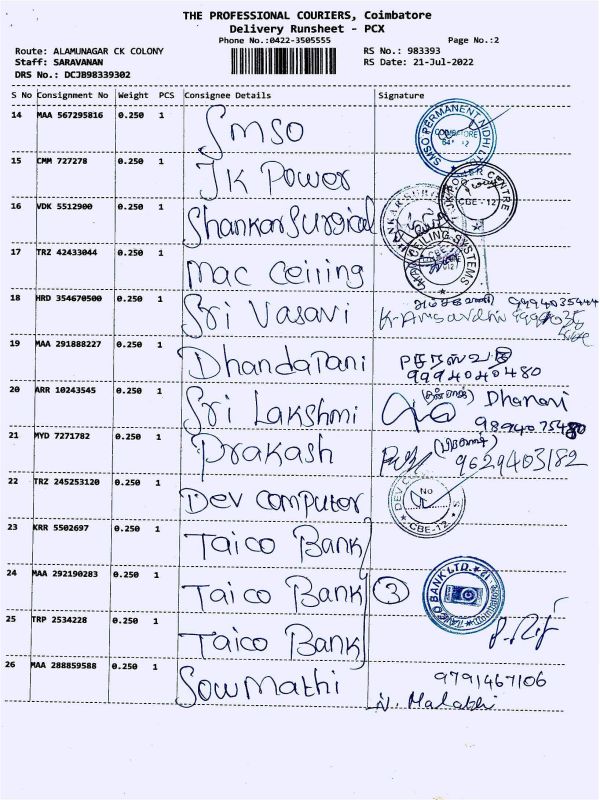 THE PROFESSIONAL COURIERS, Coimbatore
Delivery Runsheet - PCX
Phone No.:0422-3505555
Page No.:2
Route: ALAMUNAGAR CK COLONY
RS No.: 983393
Staff: SARAVANAN
RS Date: 21-Jul-2022
DRS No.: DCJB98339302
S No Consignment No Weight PCS Consignee Details Signature
14 MAA 567295816 0.250 1 SMSO
SMSO PERMANENT NIDHI LTD
COIMBATORE
15 CMM 727278 0.250 1 JK Power
JK POWER CENTRE
CBE-12
16 VDK 5512900 0.250 1 Shankar Surgical
17 TRZ 42433044 0.250 1 Mac Ceiling
MAC CEILING SYSTEMS
18 HRD 354670500 0.250 1 Sri Vasavi
9994035444
19 MAA 291888227 0.250 1 Dhandapani
9994040480
20 ARR 10243545 0.250 1 Sri Lakshmi
9894075480
21 MYD 7271782 0.250 1 Prakash
9629403182
22 TRZ 245253120 0.250 1 Dev Computer
DEV
No
CBE-12
23 KRR 5502697 0.250 1 Taico Bank
24 MAA 292190283 0.250 1 Taico Bank 3
TAICO BANK LTD.
25 TRP 2534228 0.250 1 Taico Bank
26 MAA 288859588 0.250 1 Sowmathi
9791467106
N. Malathi